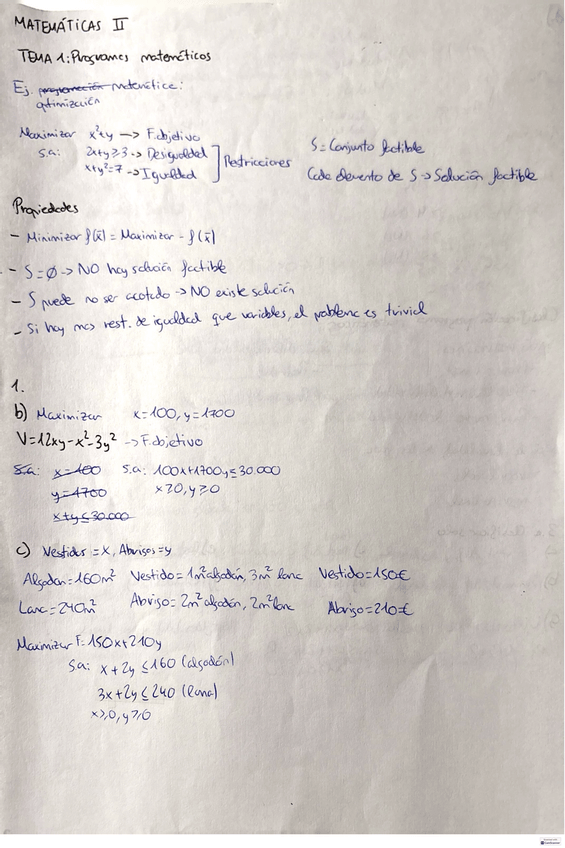 MATEMÁTICAS II
TEMA 1: Programas matemáticos
Ej. programación matemática:
optimización
Maximizar x²+y —> F.objetivo
s.a: 2x+y≥3 -> Desigualdad
x+y²=7 -> Igualdad
Restricciones
S = Conjunto factible
Cada elemento de S -> Solución factible
Propiedades
- Minimizar f(x̄) = Maximizar - f(x̄)
- S = ∅ -> NO hay solución factible
- S puede no ser acotado -> NO existe solución
- Si hay mas rest. de igualdad que variables, el problema es trivial
1.
b) Maximizar x=100, y=1700
V=12xy-x²-3y² -> F.objetivo
s.a: x=100 s.a: 100x+1700y≤30.000
y=1700 x≥0, y≥0
x+y≤30.000
c) Vestidos = x, Abrigos = y
Algodon=160m² Vestido=1m² algodón, 3m² lana Vestido=150€
Lana=240m² Abrigo=2m² algodón, 2m² lana Abrigo=210€
Maximizar F=150x+210y
s.a: x+2y ≤160 (algodón)
3x+2y ≤240 (lana)
x≥0, y≥0